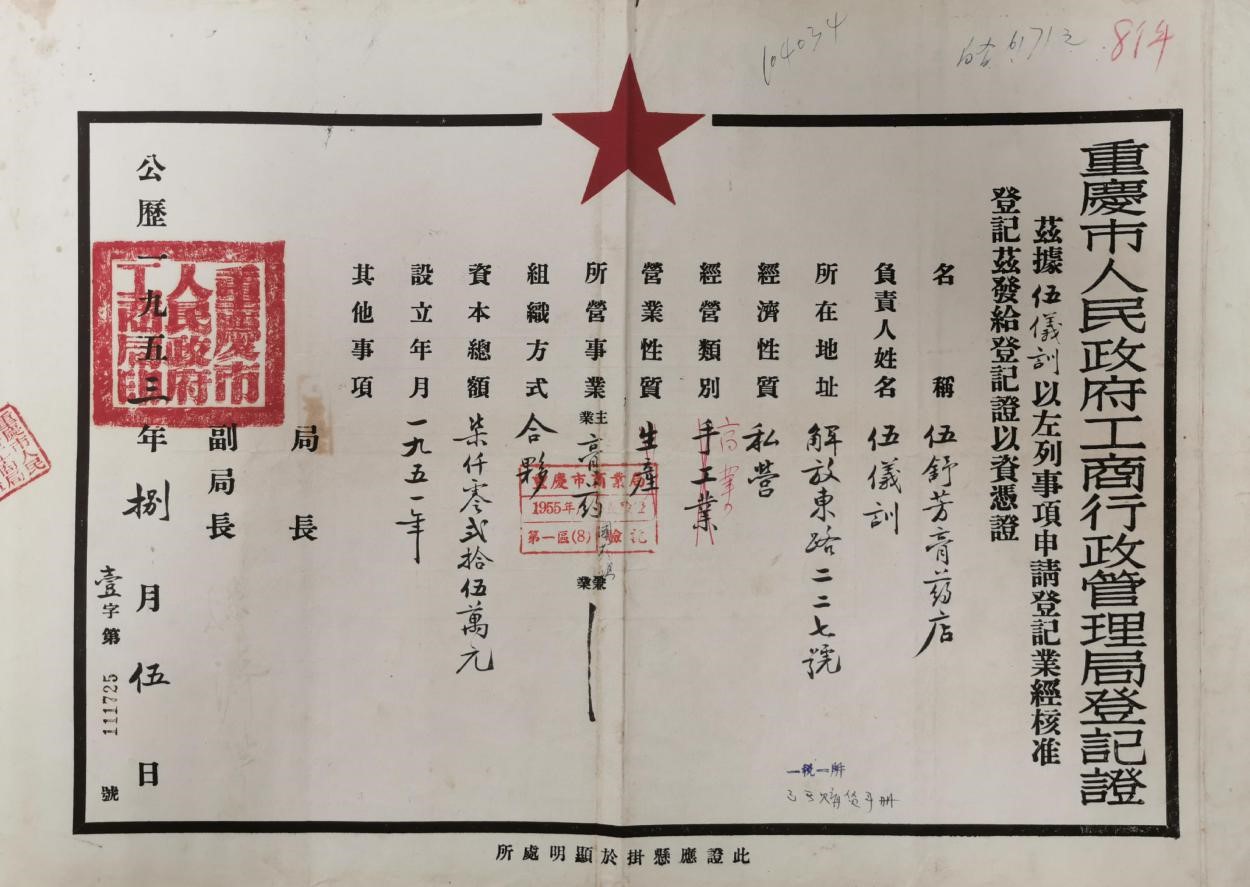 重慶市人民政府工商行政管理局登記證
茲據伍儀訓以左列事項申請登記業經核准
登記茲發給登記證以資憑證
名稱 伍舒芳膏药店
負責人姓名 伍儀訓
所在地址 解放東路二二七號
經濟性質 私營
經營類別 手工業
營業性質 生產
所營事業 主業 膏药 兼業
組織方式 合夥
資本總額 柒仟零弍拾伍萬元
設立年月 一九五一年
其他事項
局長
副局長
公歷一九五三年捌月伍日
壹字第111725號
此證應懸掛於顯明處所
重慶市人民政府工商局印
重慶市商業局
1955年
第一區(8)
104034
6171
81年
一税一所